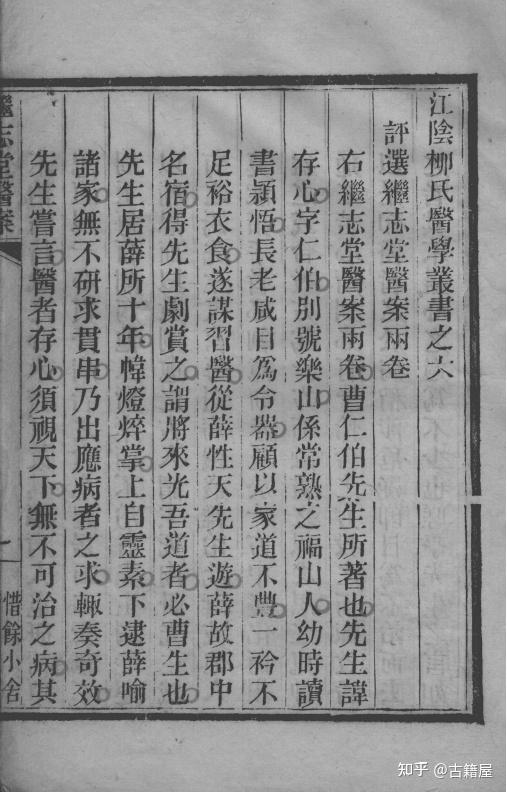 江陰柳氏醫學叢書之六
評選繼志堂醫案兩卷
右繼志堂醫案兩卷曹仁伯先生所著也先生諱
存心字仁伯別號樂山係常熟之福山人幼時讀
書頴悟長老咸目爲令器顧以家道不豐一衿不
足裕衣食遂謀習醫從薛性天先生遊薛故郡中
名宿得先生劇賞之謂將來光吾道者必曹生也
先生居薛所十年幃燈焠掌上自靈素下逮薛喻
諸家無不研求貫串乃出應病者之求輒奏奇效
先生嘗言醫者存心須視天下無不可治之病其
繼志堂醫案
一
惜餘小舍
知乎 @古籍屋